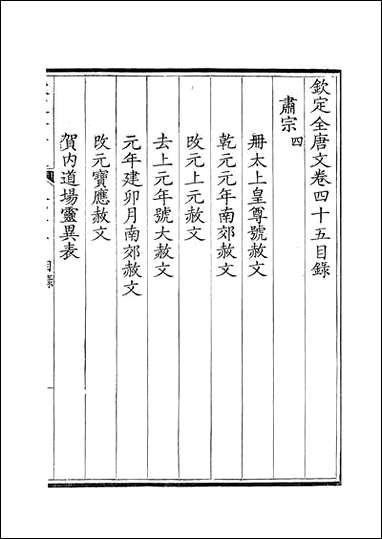 欽定全唐文卷四十五目錄
肅宗四
冊太上皇尊號赦文
乾元元年南郊赦文
改元上元赦文
去上元年號大赦文
元年建卯月南郊赦文
改元寶應赦文
賀內道場靈異表
目錄